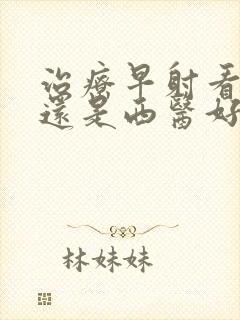 治療早射看
還是西醫好
林妹妹